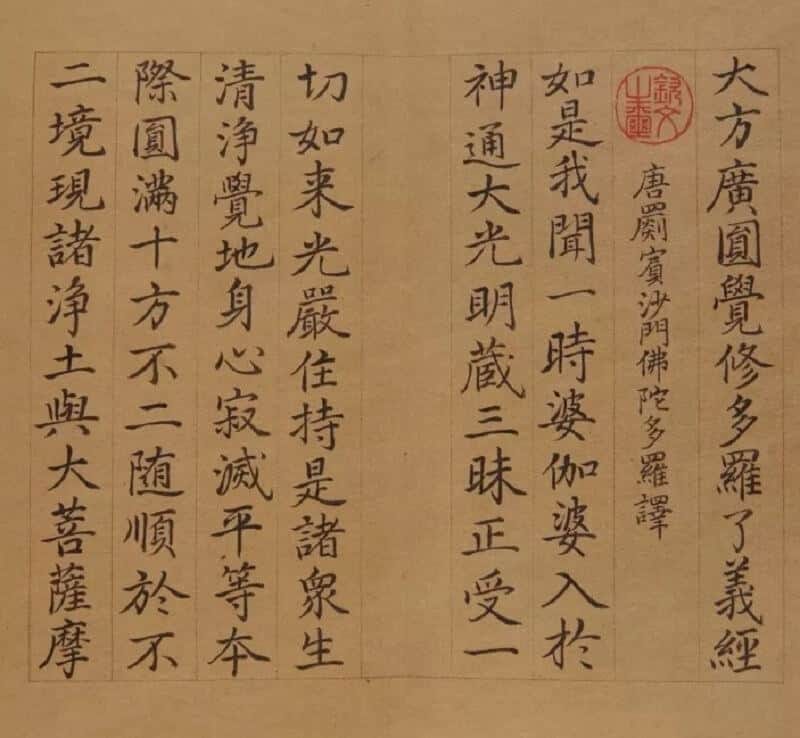 大方廣圓覺修多羅了義經
欽文之璽
唐罽賓沙門佛陀多羅譯
如是我聞一時婆伽婆入於
神通大光明蔵三昧正受一
切如来光嚴住持是諸衆生
清浄覺地身心寂滅平等本
際圓滿十方不二随順於不
二境現諸浄土與大菩薩摩